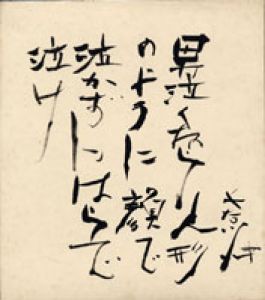 男泣くなら人形
のように顔で
泣かずにはらで
泣け